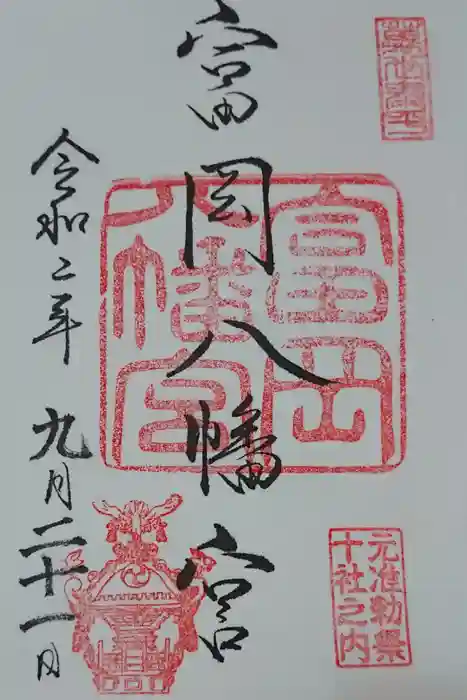 富岡八幡宮
令和二年 九月二十一日
富岡
八幡宮
元准勅祭
十社之内